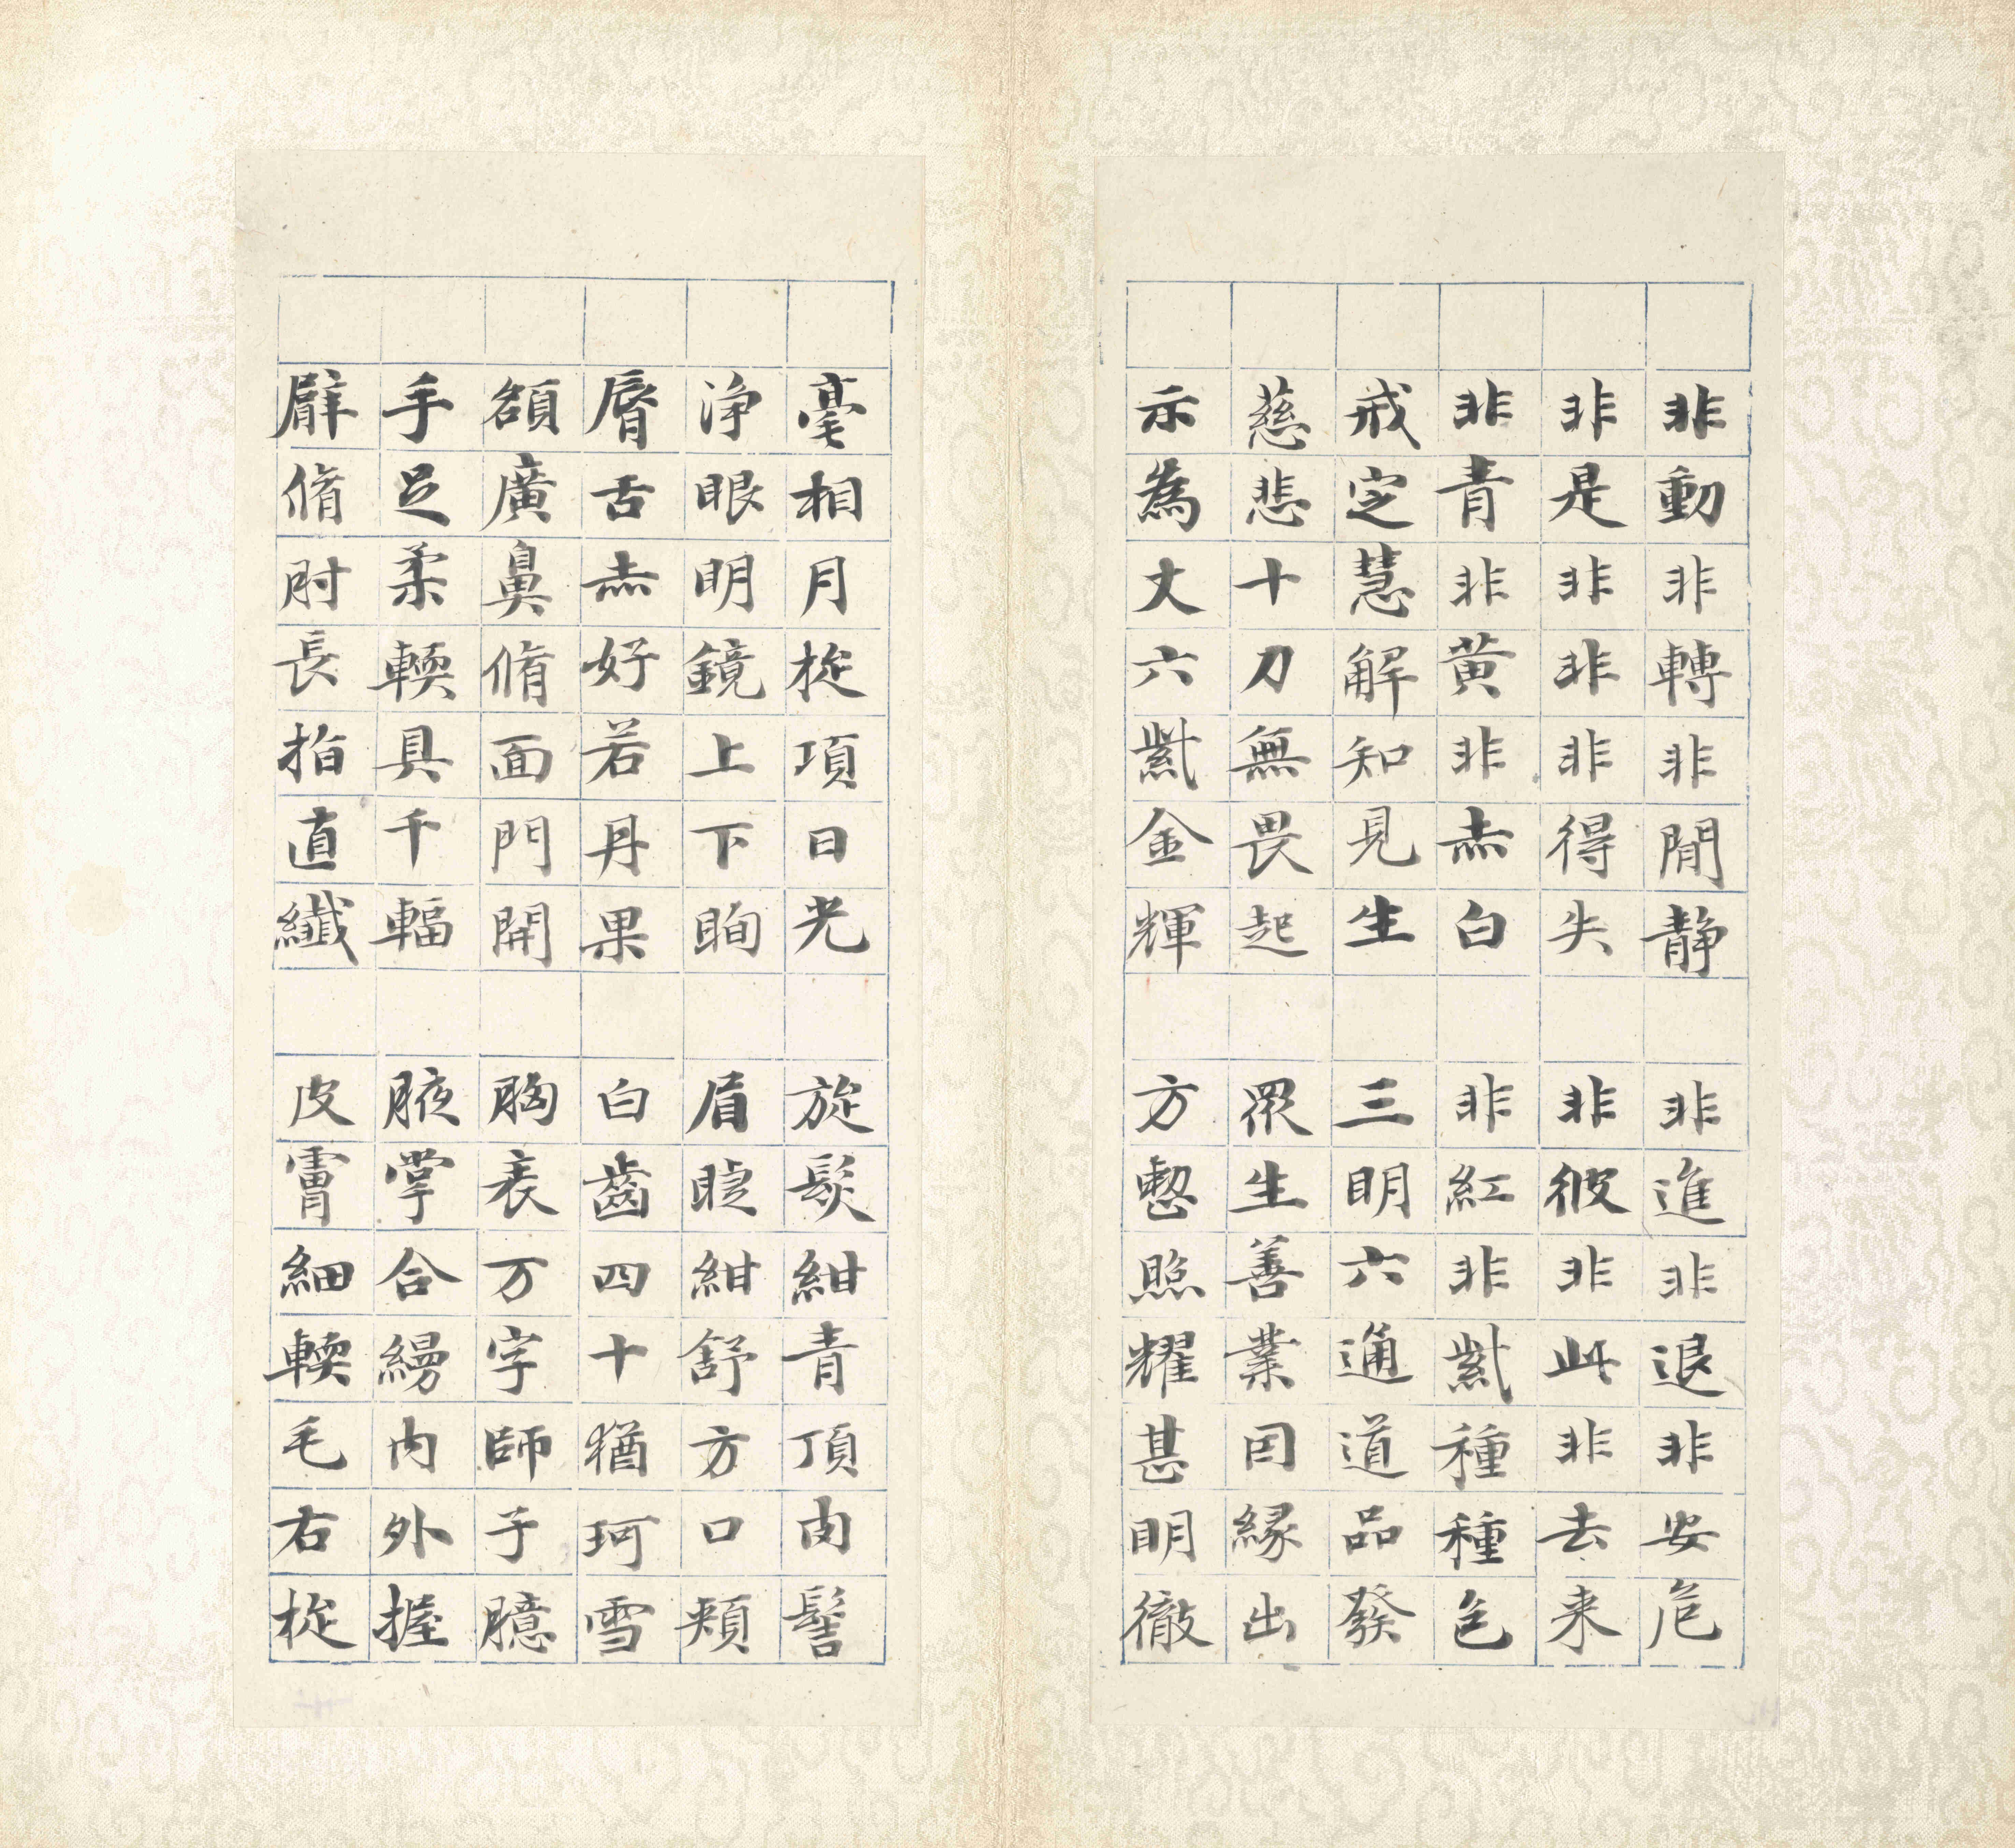 非動非轉非閒靜　非進非退非安危
非是非非非得失　非彼非此非去来
非青非黃非赤白　非紅非紫種種色
戒定慧解知見生　三明六通道品發
慈悲十力無畏起　眾生善業囙緣出
示為丈六紫金輝　方整照耀甚明徹
毫相月旋項日光　旋髮紺青頂肉髻
淨眼明鏡上下眴　眉睫紺舒方口頰
脣舌赤好若丹果　白齒四十猶珂雪
額廣鼻脩面門開　胸表万字師子臆
手足柔輭具千輻　腋掌合縵內外握
臂脩肘長指直纖　皮膚細輭毛右旋